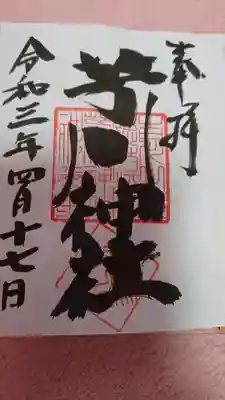 奉拝
芳川神社
令和三年四月十七日